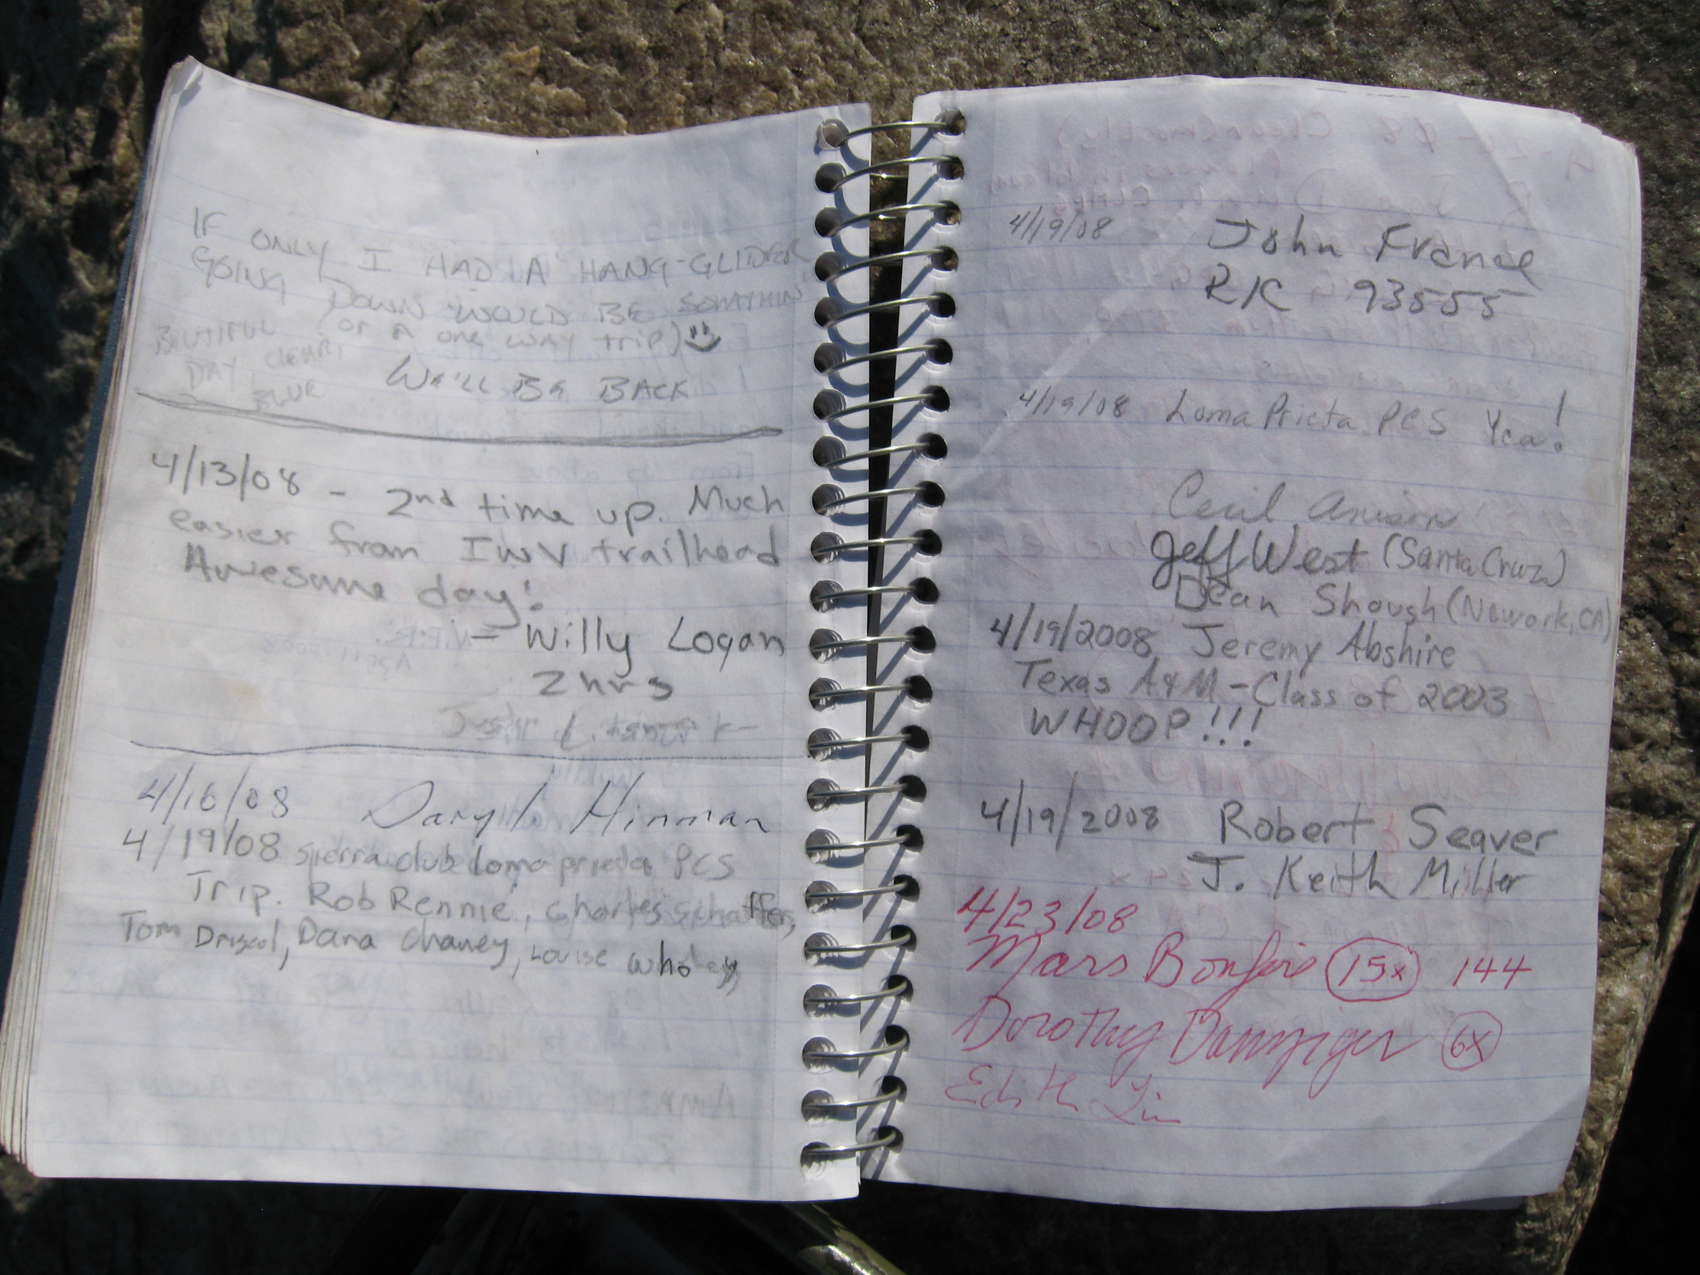 IF ONLY I HAD A HANG-GLIDER
GOING DOWN WOULD BE SOMETHIN'
(or A one way trip)
BEUTIFUL
DAY CLEAR
BLUE
WE'LL BE BACK!
4/13/08 - 2nd time up. Much
easier from IWV trailhead
Awesome day!
- Willy Logan
2 hrs
4/16/08 Daryl Hinman
4/19/08 sierra club loma prieta PCS
Trip. Rob Rennie, Charles Schaffers,
Tom Driscol, Dana Chaney, Louise Wholey
4/19/08 John France
RIC 93555
4/19/08 Loma Prieta PCS Yea!
Cecil Anison
Jeff West (Santa Cruz)
Dean Shough (Newark, CA)
4/19/2008 Jeremy Abshire
Texas A&M - Class of 2003
WHOOP!!!
4/19/2008 Robert Seaver
J. Keith Miller
4/23/08
Mars Bonfire 15x 144
Dorothy Danziger 6x
Edith Liu